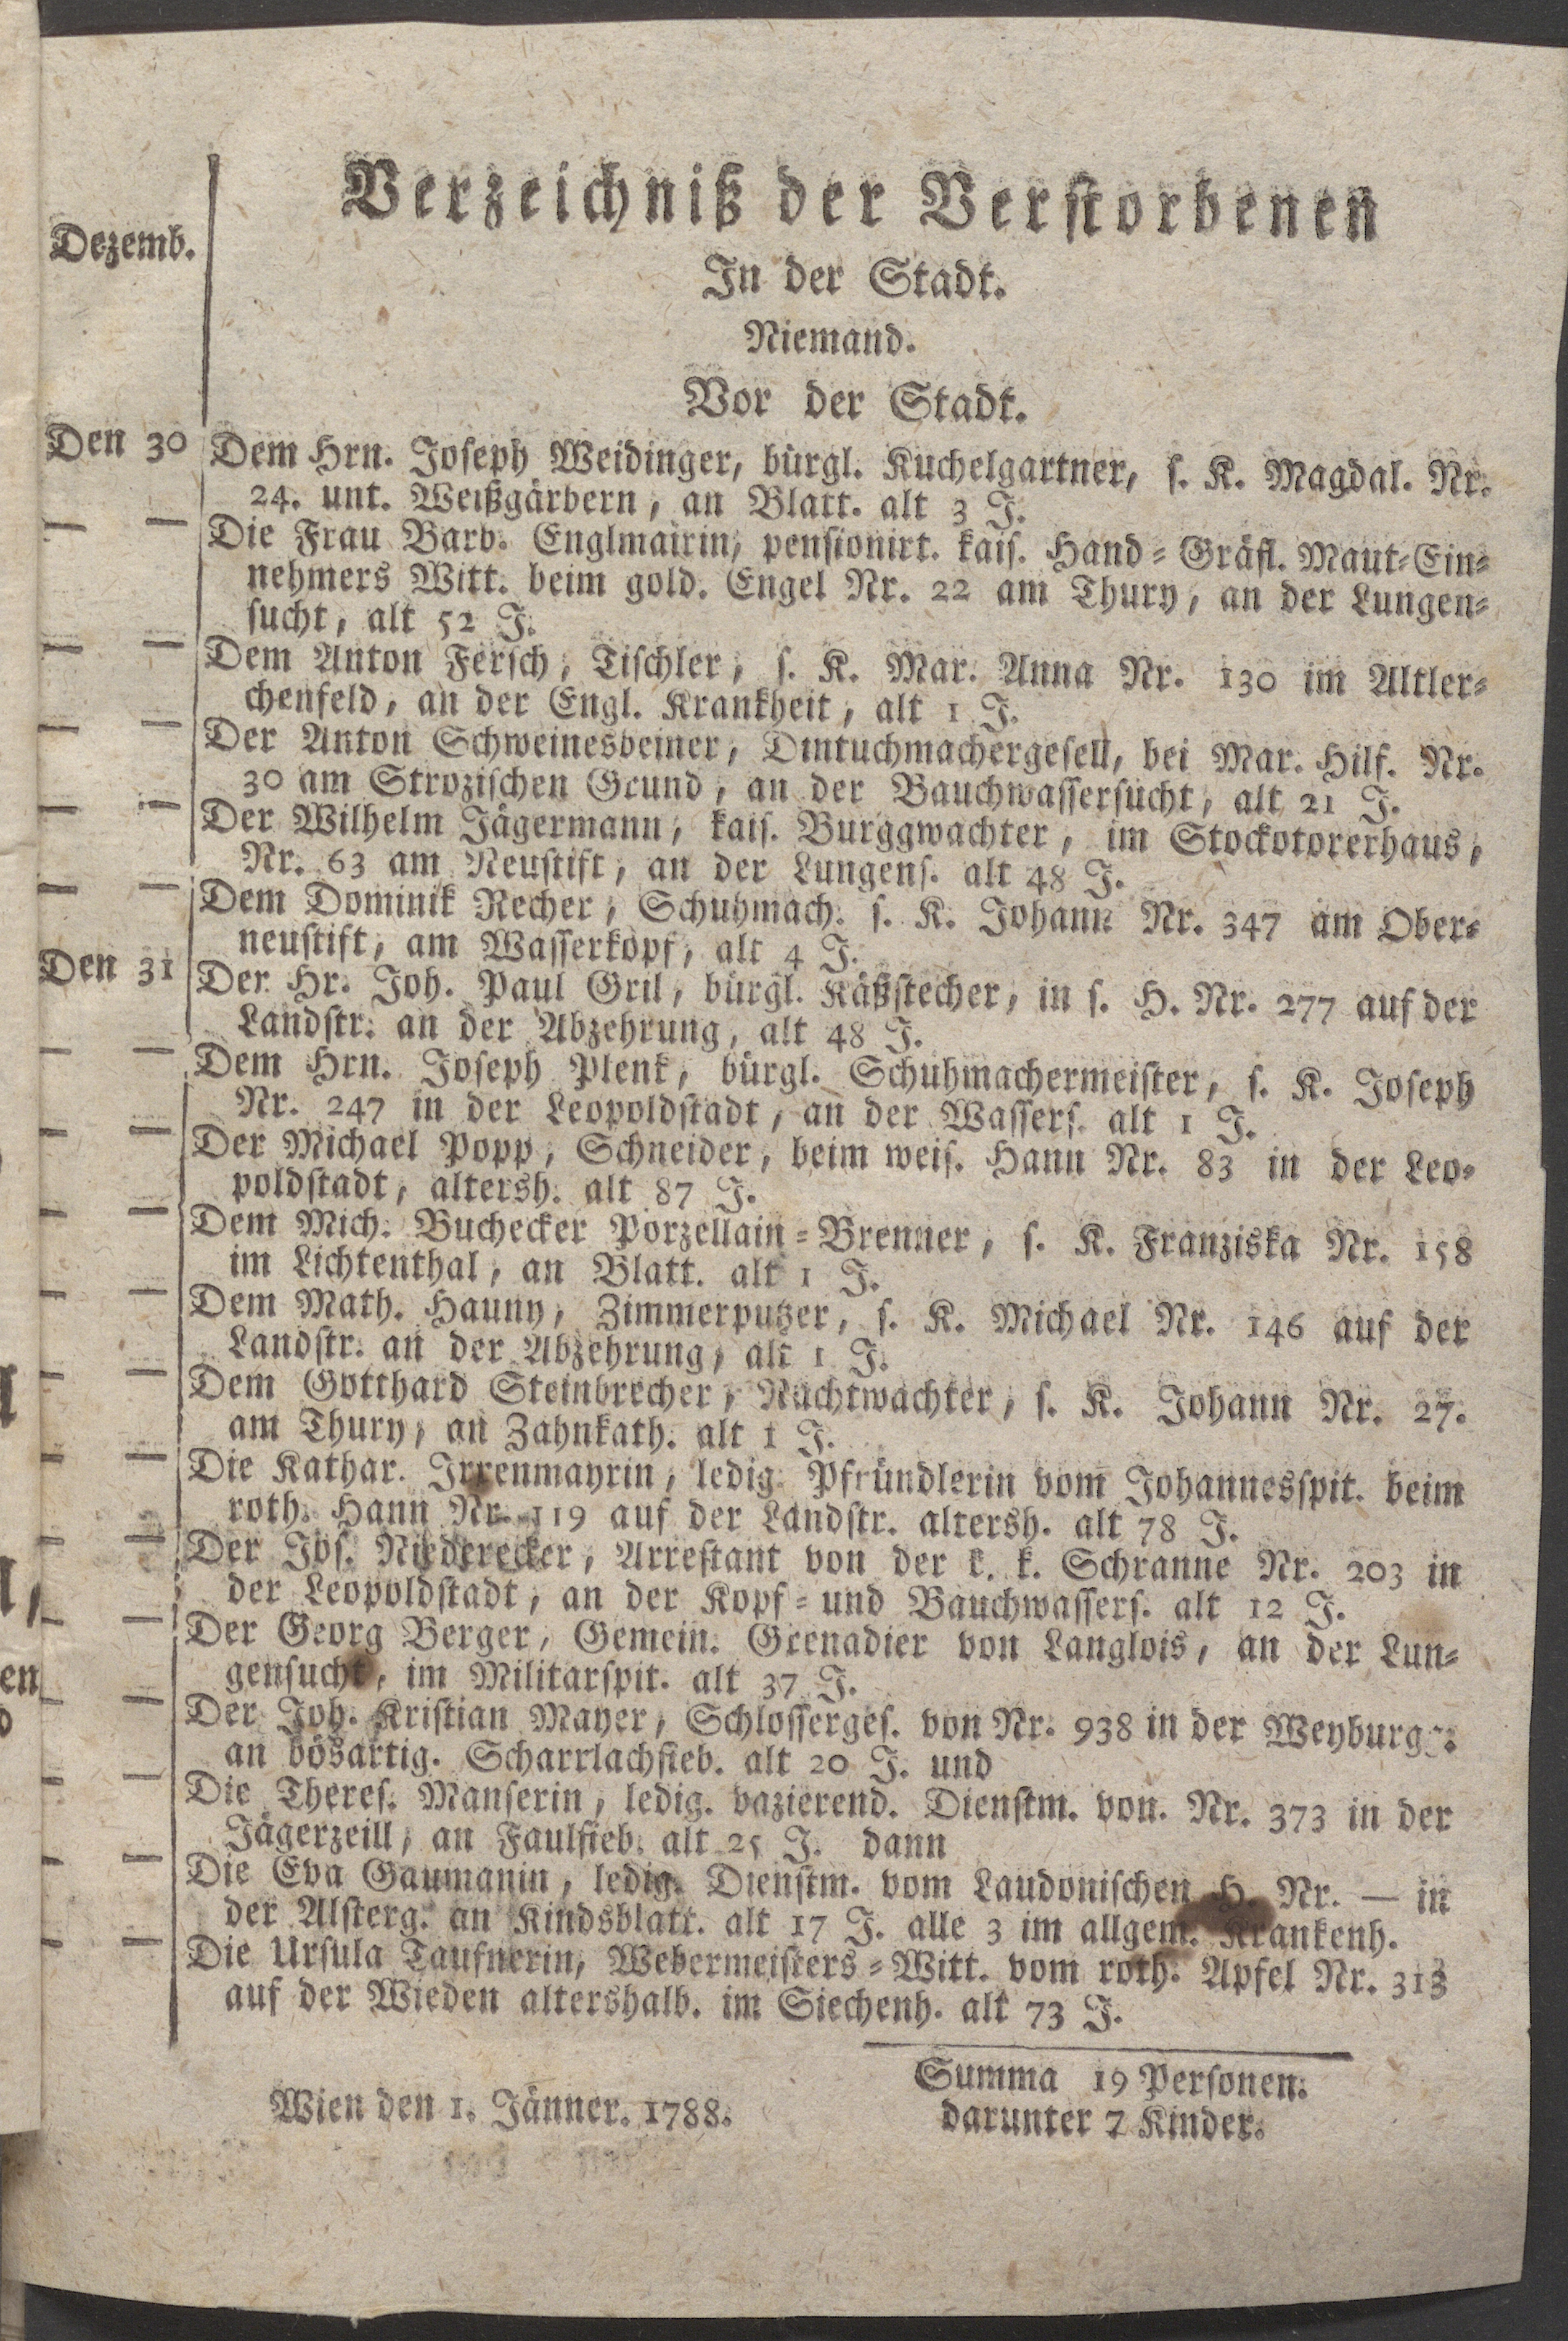 Verzeichniß der Verstorbenen
Dezemb.
In der Stadt.
Niemand.
Vor der Stadt.
Den 30 Dem Hrn. Joseph Weidinger, bürgl. Kuchelgartner, s. K. Magdal. Nr.
24. unt. Weißgärbern, an Blatt. alt 3 J.
— — Die Frau Barb. Englmairin, pensionirt. kais. Hand-Gräfl. Maut-Ein-
nehmers Witt. beim gold. Engel Nr. 22 am Thury, an der Lungen-
sucht, alt 52 J.
— — Dem Anton Fersch, Tischler, s. K. Mar. Anna Nr. 130 im Altler-
chenfeld, an der Engl. Krankheit, alt 1 J.
— — Der Anton Schweinesbeiner, Dintuchmachergesell, bei Mar. Hilf. Nr.
30 am Strozischen Grund, an der Bauchwassersucht, alt 21 J.
— — Der Wilhelm Jägermann, kais. Burggwachter, im Stockotorerhaus,
Nr. 63 am Neustift, an der Lungens. alt 48 J.
— — Dem Dominik Recher, Schuhmach. s. K. Johann Nr. 347 am Ober-
neustift, am Wasserkopf, alt 4 J.
Den 31 Der Hr. Joh. Paul Gril, bürgl. Käßstecher, in s. H. Nr. 277 auf der
Landstr. an der Abzehrung, alt 48 J.
— — Dem Hrn. Joseph Plenk, bürgl. Schuhmachermeister, s. K. Joseph
Nr. 247 in der Leopoldstadt, an der Wassers. alt 1 J.
— — Der Michael Popp, Schneider, beim weis. Hann Nr. 83 in der Leo-
poldstadt, altersh. alt 87 J.
— — Dem Mich. Buchecker Porzellain-Brenner, s. K. Franziska Nr. 158
im Lichtenthal, an Blatt. alt 1 J.
— — Dem Math. Hauny, Zimmerputzer, s. K. Michael Nr. 146 auf der
Landstr. an der Abzehrung, alt 1 J.
— — Dem Gotthard Steinbrecher, Nachtwachter, s. K. Johann Nr. 27.
am Thury, an Zahnkath. alt 1 J.
— — Die Kathar. Irrenmayrin, ledig. Pfründlerin vom Johannesspit. beim
roth. Hann Nr. 119 auf der Landstr. altersh. alt 78 J.
— — Der Jos. Niederecker, Arrestant von der k. k. Schranne Nr. 203 in
der Leopoldstadt, an der Kopf- und Bauchwassers. alt 12 J.
— — Der Georg Berger, Gemein. Grenadier von Langlois, an der Lun-
gensucht, im Militarspit. alt 37 J.
— — Der Joh. Kristian Mayer, Schlosserges. von Nr. 938 in der Weyburgg.
an bösartig. Scharrlachfieb. alt 20 J. und
— — Die Theres. Manserin, ledig. vazierend. Dienstm. von. Nr. 373 in der
Jägerzeill, an Faulfieb. alt 25 J. dann
— — Die Eva Gaumanin, ledig. Dienstm. vom Laudonischen H. Nr. — in
der Alsterg. an Kindsblatt. alt 17 J. alle 3 im allgem. Krankenh.
— — Die Ursula Taufnerin, Webermeisters-Witt. vom roth. Apfel Nr. 313
auf der Wieden altershalb. im Siechenh. alt 73 J.
Summa 19 Personen.
Wien den 1. Jänner. 1788.
darunter 7 Kinder.